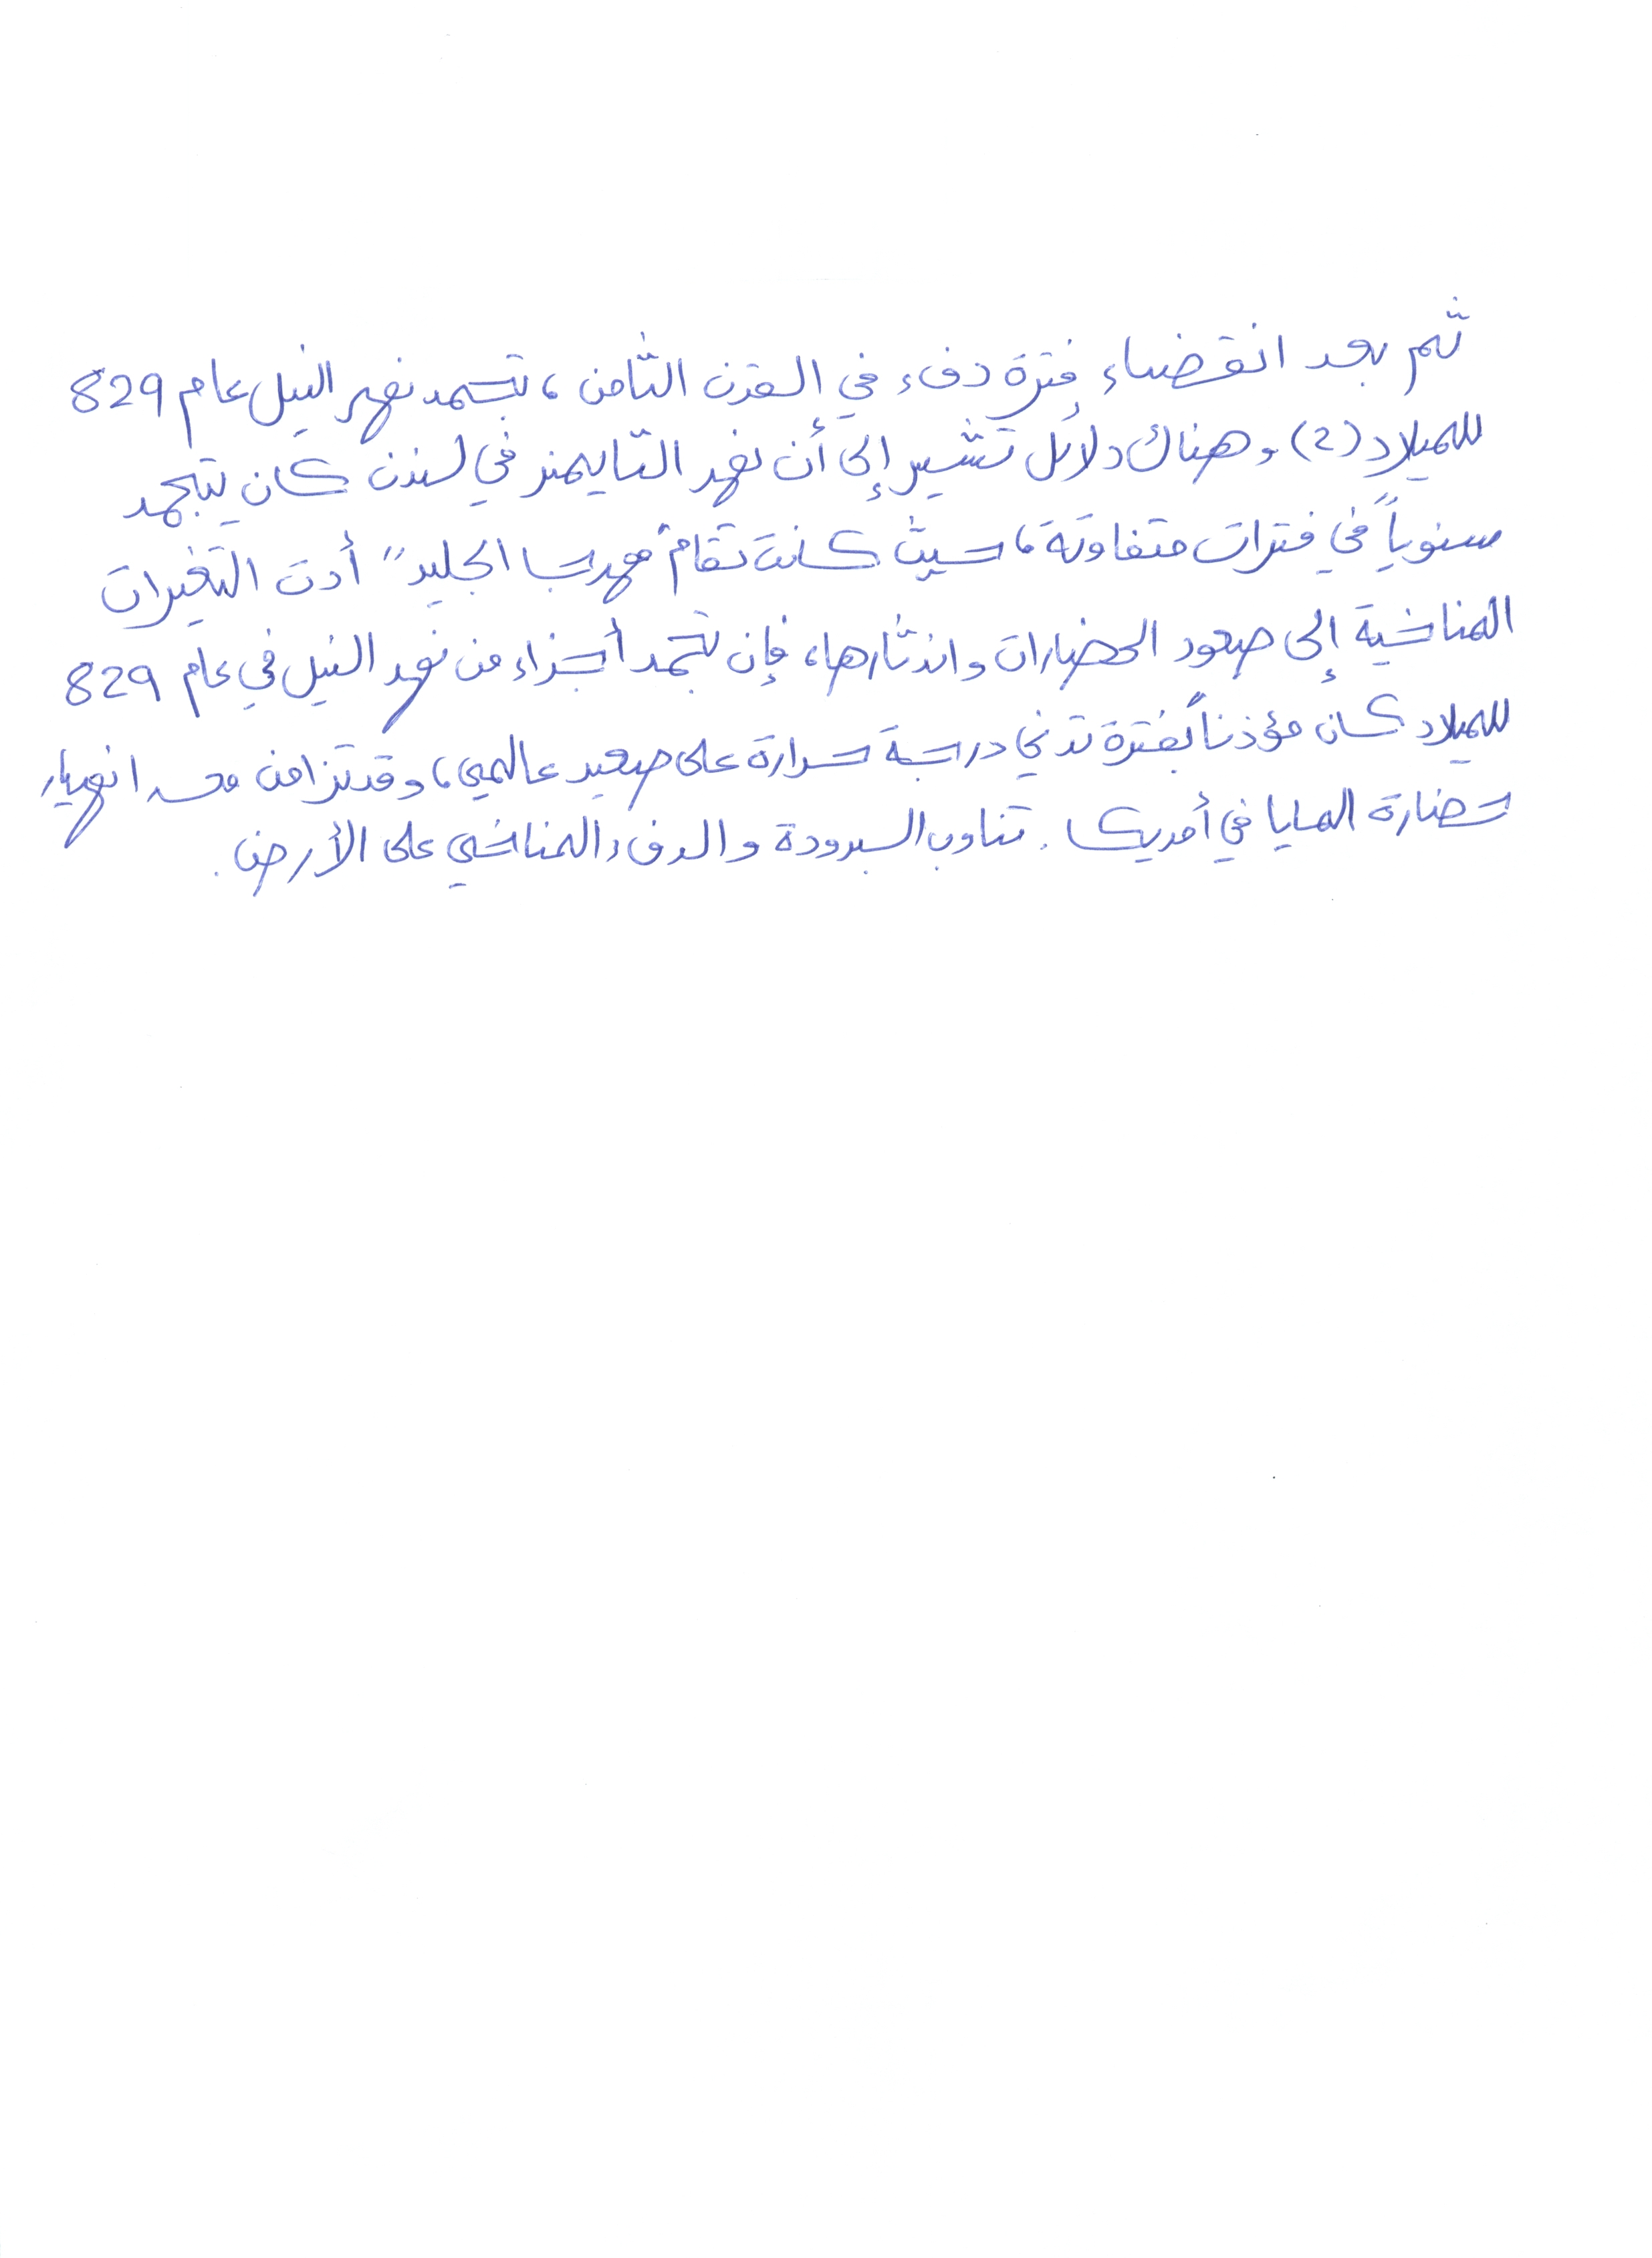 ثم بعد انقضاء فترة دفء في القرن الثامن، تجمد نهر النيل عام 829
للميلاد (2) وهناك دلائل تشير إلى أن نهر التايمز في لندن كان يتجمد
سنوياً في فترات متفاوتة، حيث كانت تقام "مهرجا الجليد" أدت التغيرات
المناخية إلى صعود الحضارات واندثارها، فإن تجمد أجزاء من نهر النيل في عام 829
للميلاد كان مؤذناً بفترة تدني درجة حرارة على صعيد عالمي، وقد تزامن مع انهيار
حضارة المايا في أمريكا. تناوب البرودة والدفء المناخي على الأرض.